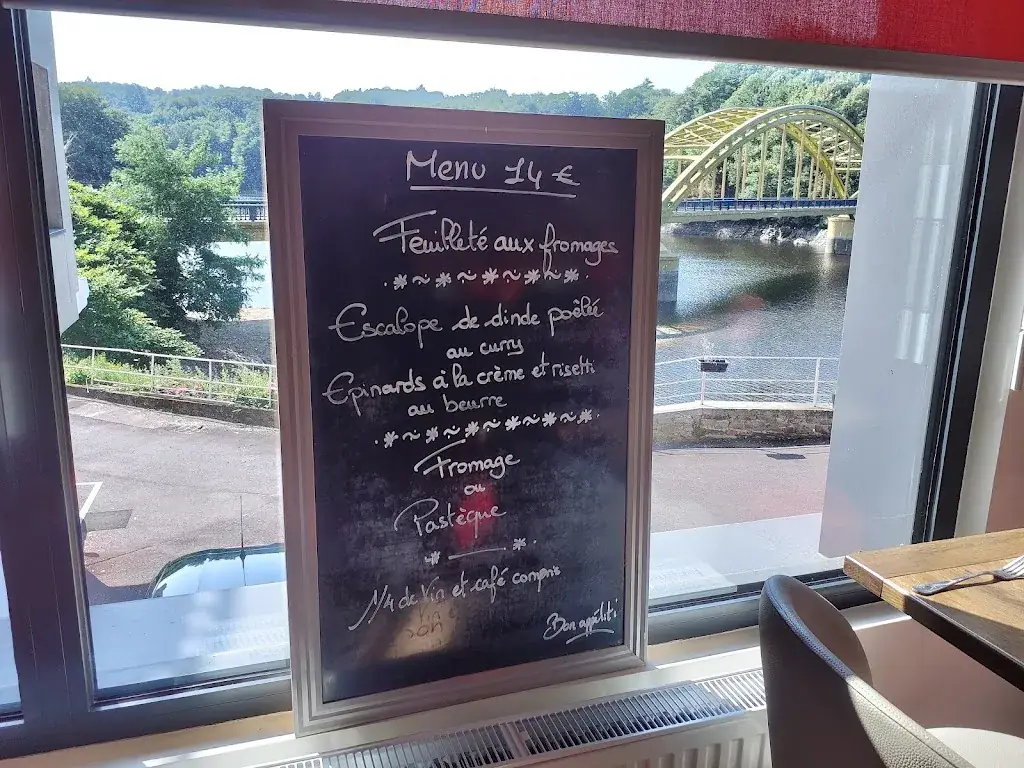 Menu 14 €
Feuilleté aux fromages
Escalope de dinde poêlée
au curry
Epinards à la crème et risetti
au beurre
Fromage
ou
Pastèque
1/4 de Vin et café compris
Bon appétit!